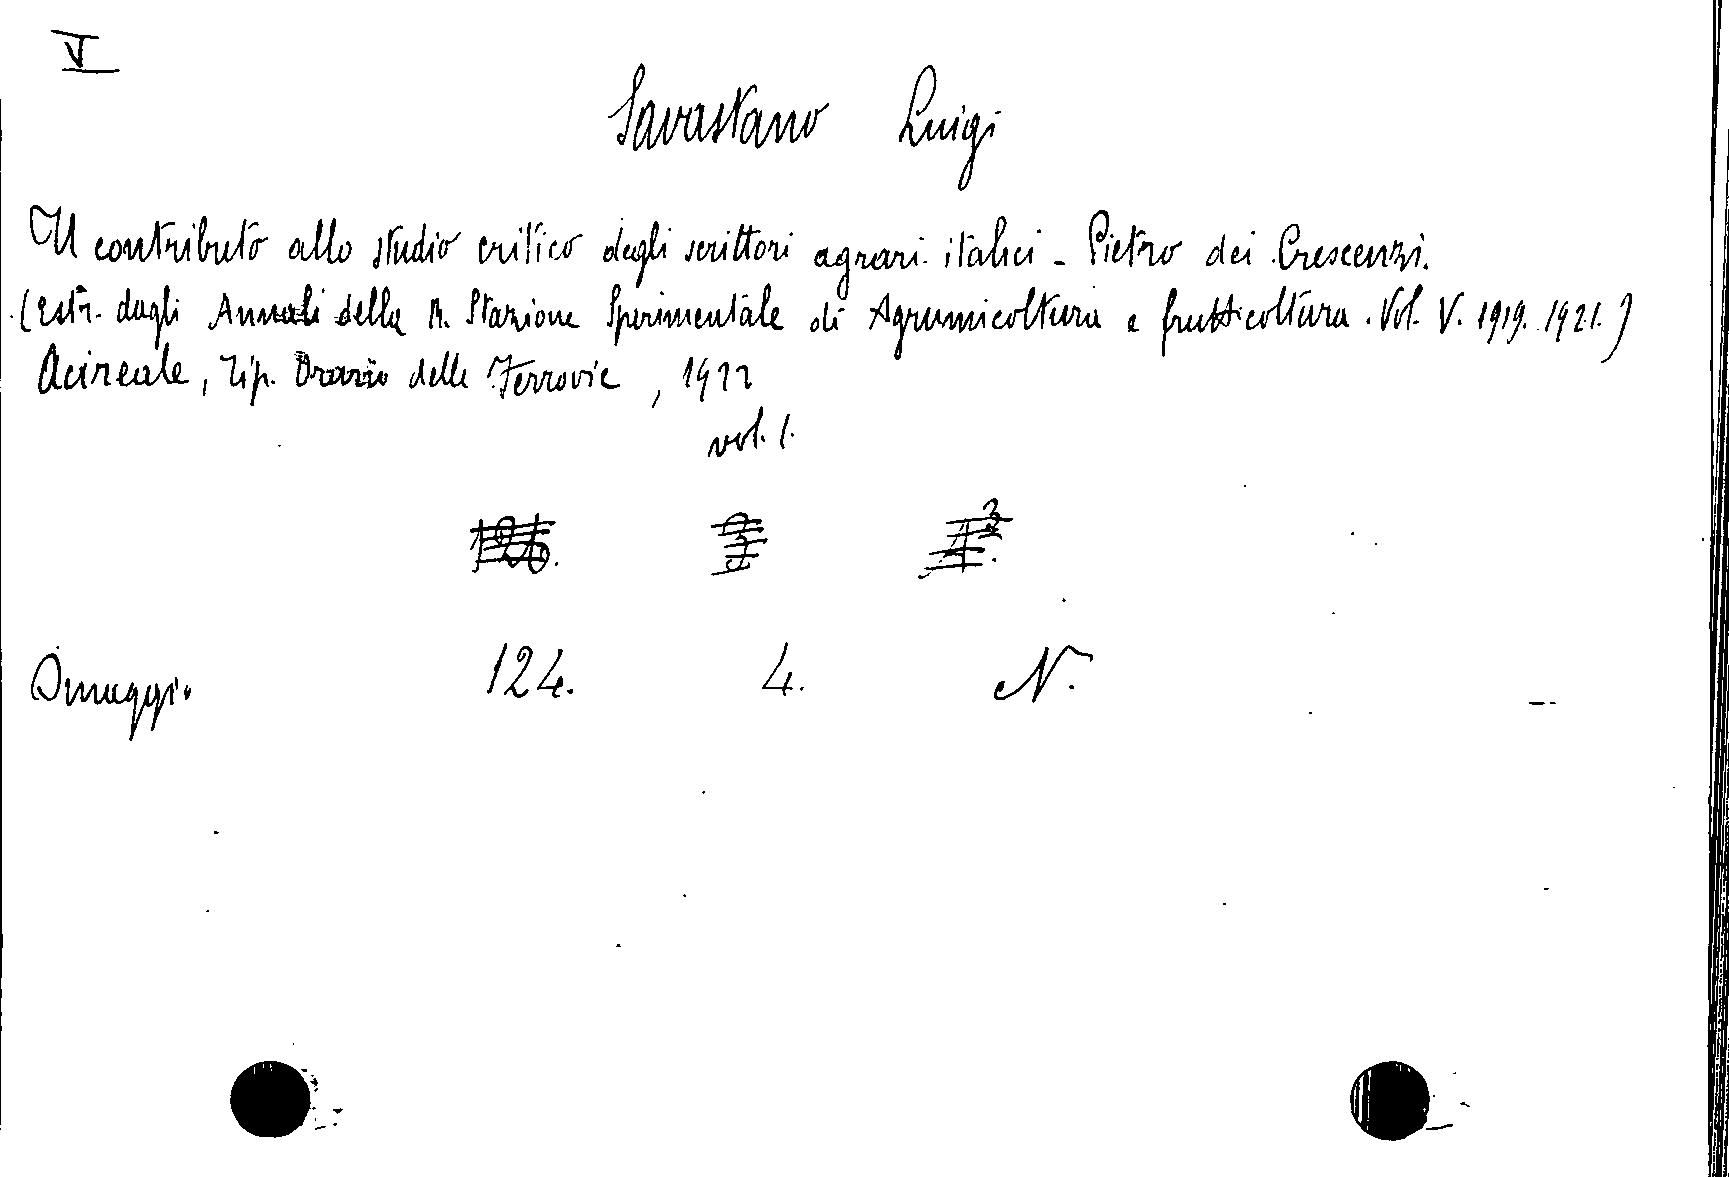 V
Savastano Luigi
Il contributo allo studio critico degli scrittori agrari italici - Pietro dei Crescenzi.
(Estr. dagli Annali della R. Stazione Sperimentale di Agrumicoltura e frutticoltura. Vol. V. 1919. 1921.)
Acireale, Tip. Orario delle Ferrovie, 1922
vol. 1.
Omaggio 124. 4. N.